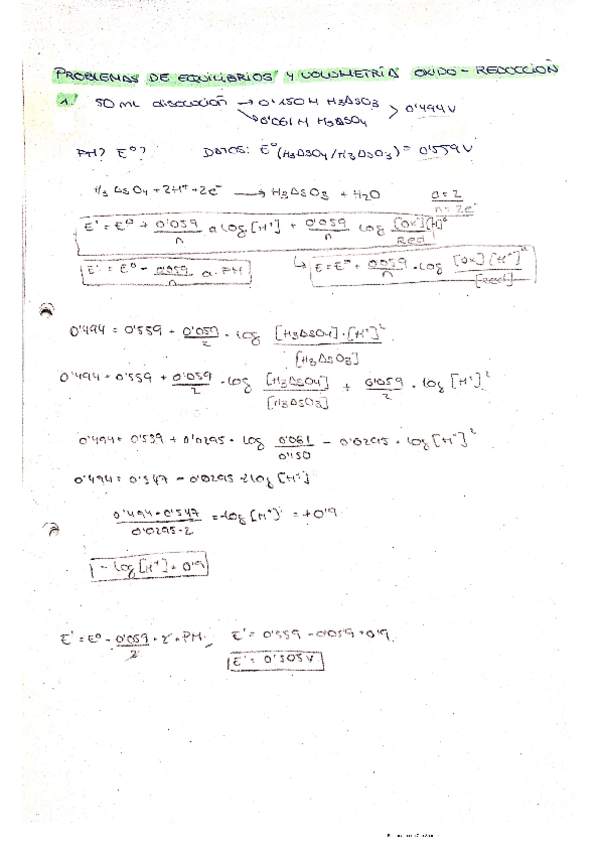 PROBLEMAS DE EQUILIBRIOS Y VOLUMETRÍA OXIDO-REDOCCIÓN
1. 50 mL disolución → 0'150 M H3AsO3
↘ 0'061 M H3AsO4 > 0'494 V
PH? E°'? DATOS: E°(H3AsO4/H3AsO3) = 0'559 V
H3AsO4 + 2H+ + 2e- → H3AsO3 + H2O a=2
n=2e-
E' = E° + 0'059/n a log [H+] + 0'059/n log [Ox][H]a/Red
E' = E° - 0'059/n a · PH ↳ E = E° + 0'059/n · log [Ox][H+]a/[Red]
0'494 = 0'559 + 0'059/2 · log [H3AsO4]·[H+]2/[H3AsO3]
0'494 = 0'559 + 0'059/2 · log [H3AsO4]/[H3AsO3] + 0'059/2 · log [H+]2
0'494 = 0'559 + 0'0295 · log 0'061/0'150 - 0'0295 · log [H+]2
0'494 = 0'547 - 0'0295 · 2 log [H+]
0'494 - 0'547/0'0295·2 = -log [H+] = +0'9
- log [H+] = 0'9
E' = E° - 0'059/2 · 2 · PH E' = 0'559 - 0'059 · 0'9
E' = 0'505 V